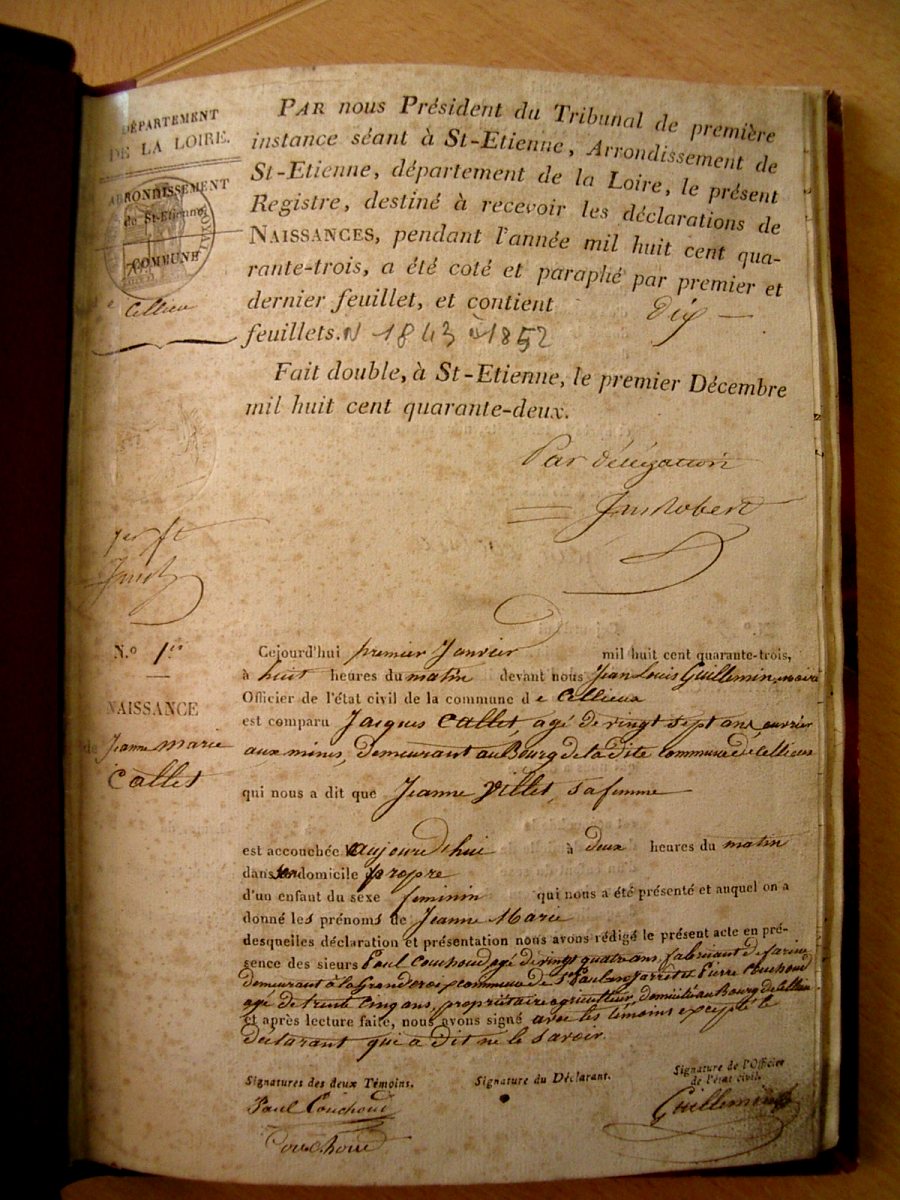 DÉPARTEMENT
DE LA LOIRE.
ARRONDISSEMENT
de St-Etienne
COMMUNE
de Cellieu
PAR nous Président du Tribunal de première
instance séant à St-Etienne, Arrondissement de
St-Etienne, département de la Loire, le présent
Registre, destiné à recevoir les déclarations de
NAISSANCES, pendant l'année mil huit cent qua-
rante-trois, a été coté et paraphé par premier et
dernier feuillet, et contient dix —
feuillets. N 1843 à 1852
Fait double, à St-Etienne, le premier Décembre
mil huit cent quarante-deux.
Par délégation
1er ft
N.º 1er
NAISSANCE
de Jeanne Marie
Callet
Cejourd'hui premier Janvier mil huit cent quarante-trois,
à huit heures du matin devant nous Jean Louis Guillemin, maire
Officier de l'état civil de la commune de Cellieux
est comparu Jacques Callet, agé de vingt sept ans, ouvrier
aux mines, demeurant au Bourg de la dite commune de Cellieux
qui nous a dit que Jeanne Villet, sa femme
est accouchée aujourd'hui à deux heures du matin
dans son domicile propre
d'un enfant du sexe feminin qui nous a été présenté et auquel on a
donné les prénoms de Jeanne Marie
desquelles déclaration et présentation nous avons rédigé le présent acte en pré-
sence des sieurs Paul Couchoud agé de vingt quatre ans, fabriant de farine
demeurant à la Grand croix commune de St Paul en Jarret et Pierre Couchoud
agé de trente cinq ans, propriétaire agriculteur, domicilié au Bourg de Cellieux
et après lecture faite, nous avons signé avec les témoins excepté le
déclarant qui a dit ne le savoir.
Signatures des deux Témoins.
Signature du Déclarant.
Signature de l'Officier
de l'état civil.
Paul Couchoud
Couchoud
Guillemin